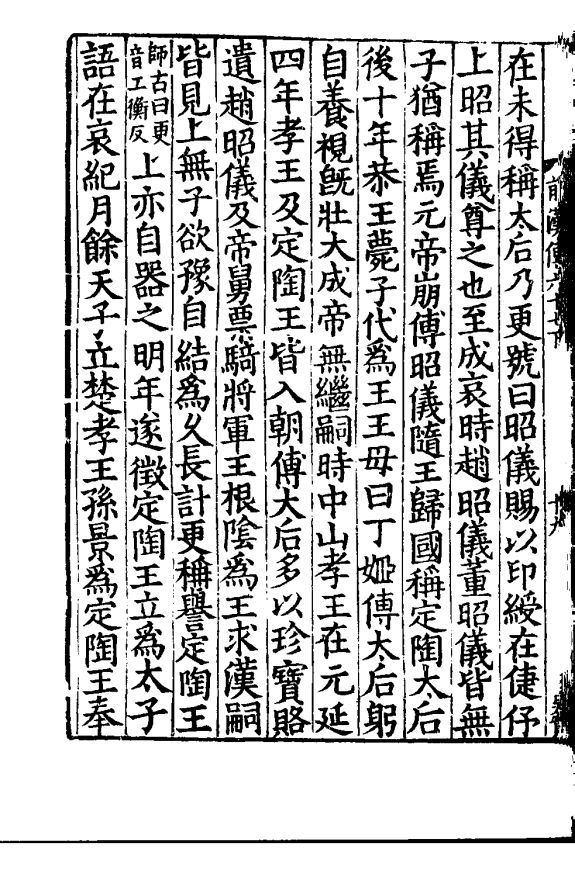 在未得稱太后乃更號曰昭儀賜以印綬在倢伃
上昭其儀尊之也至成哀時趙昭儀董昭儀皆無
子猶稱焉元帝崩傅昭儀隨王歸國稱定陶太后
後十年恭王薨子代爲王王母曰丁姬傅太后躬
自養視旣壯大成帝無繼嗣時中山孝王在元延
四年孝王及定陶王皆入朝傅太后多以珍寶賂
遺趙昭儀及帝舅票騎將軍王根陰爲王求漢嗣
皆見上無子欲豫自結爲久長計更稱譽定陶王
師古曰更
音工衡反
上亦自器之明年遂徵定陶王立爲太子
語在哀紀月餘天子立楚孝王孫景爲定陶王奉